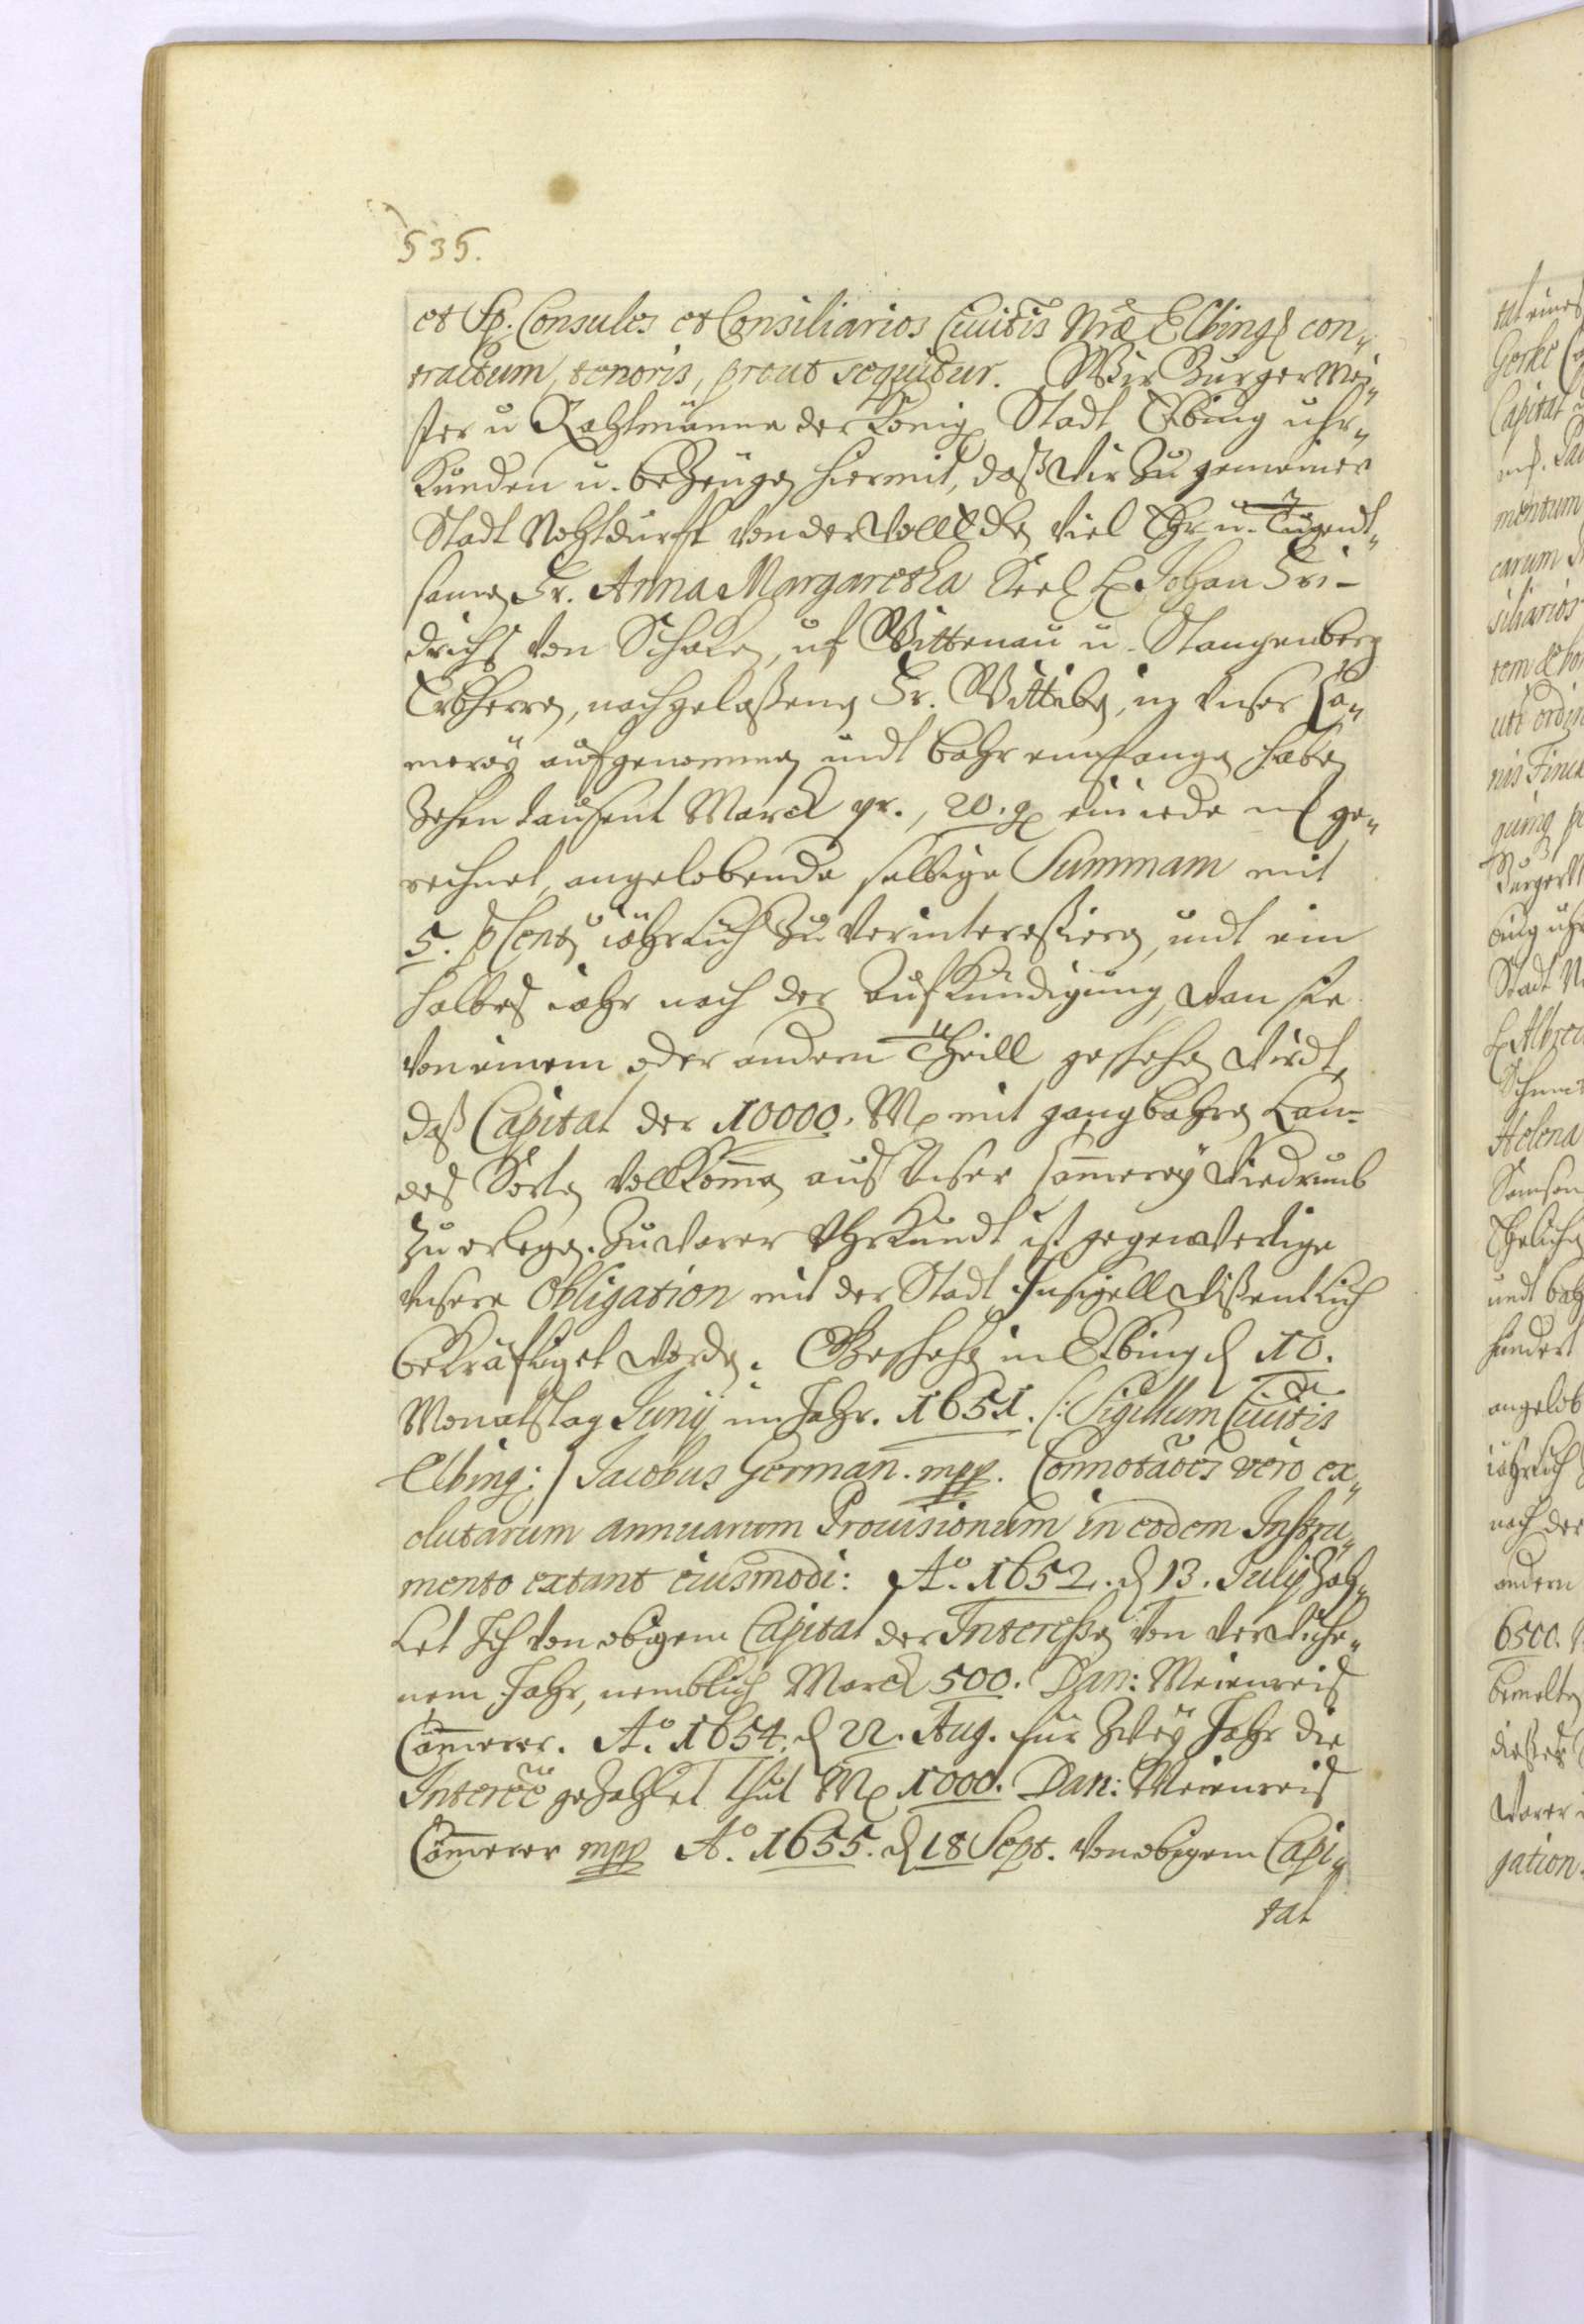 535.
et Sp. Consules et Consiliarios Ciuitis Nrae Elbing con„
tractum, tenoris, prout sequitur. Wir Burger Mei„
ster u Rahtmänne der König Stadt Elbing uhr„
kunden u. bezeugen hiermit, daß Wir zu gemeiner
Stadt Nohtdurfft von der Woll Edlen Viel Ehr u. Tugendt„
samen Fr. Anna Margaretha Seel H Johan Fri-
drichs von Schacken, uf Wittenau u. Stangenberg
Erbherren, nachgelaßenen Fr. Wittiben, in Unser Cä„
merey aufgenommen undt bahr empfangen haben
Zehen tausent Marck pr., 20. g ein iede m ge„
rechnet, angelobende selbige Summam mit
5. p Cento iährlich zu verinteressieren, undt ein
halbes iahr nach der Aufkündigung, wan sie
von einem oder andern Theill geschehen wirdt,
daß Capital der 10000. M mit gangbahren Lan-
des Sorten vollkommen auß Unser Cämerey Wiedrumb
zu erlegen. Zu warer Uhrkundt ist gegenwertige
Unsere Obligation mit der Stadt Insigell wißentlich
bekräftiget worden. Geschehen in Elbing d 10.
Monatstag Junij im Jahr. 1651. /: Sigillum Ciuitis
Elbing: / Jacobus German. mpp. Connotaoes vero ex„
olutarum annuarum Prouisionum in eodem Instru„
mento extant eiusmodi: Ao. 1652. d 13. Julij zah„
let Ich von obigem Capital der Interessen von verwiche„
nem Jahr, nemblich Marck 500. Dan: Meienreis
Cämerer. Ao. 1654. d 22. Aug. für zwey Jahr die
Interee gezahlet thut M 1000. Dan: Meienreis
Cämerer mpp Ao. 1655. d 18 Sept. von obigem Capi„
tal